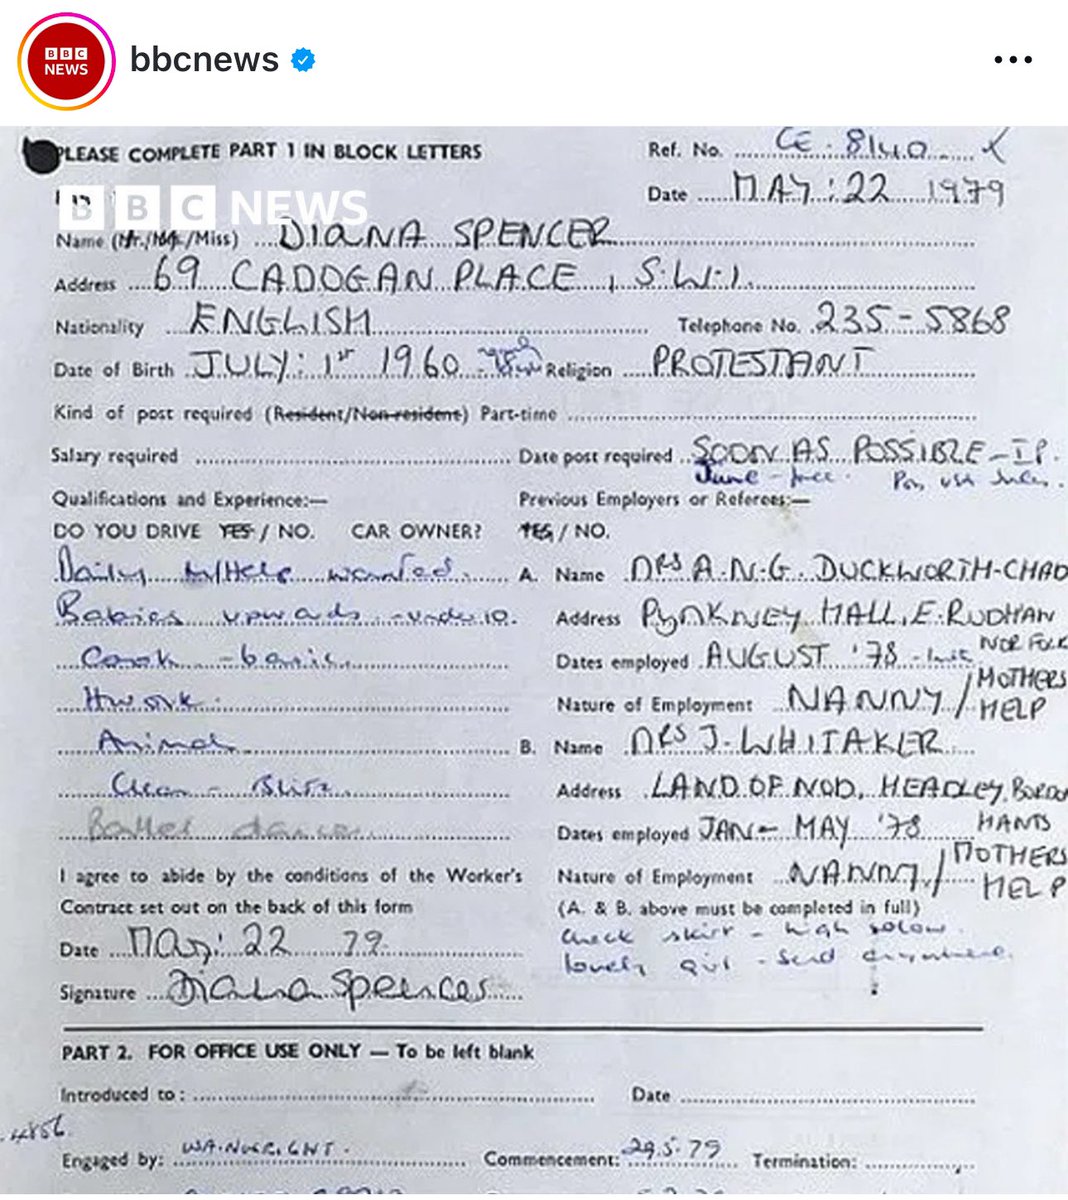 BBC NEWS
bbcnews
PLEASE COMPLETE PART 1 IN BLOCK LETTERS
Ref. No. CE. 8140
BBC NEWS
Date MAY: 22 1979
Name (Mr./Mrs./Miss) DIANA SPENCER
Address 69 CADOGAN PLACE, S.W.1.
Nationality ENGLISH Telephone No. 235-5868
Date of Birth JULY: 1ST 1960 Religion PROTESTANT
Kind of post required (Resident/Non-resident) Part-time
Salary required Date post required SOON AS POSSIBLE -
June - free.
Qualifications and Experience:— Previous Employers or Referees:—
DO YOU DRIVE YES / NO. CAR OWNER? YES / NO.
Daily M/Help wanted. A. Name MRS A.N.G. DUCKWORTH-CHAD
Babies upwards - under 10. Address PYNKNEY HALL, E. RUDHAM
NORFOLK
Cook - basic Dates employed AUGUST '78 -
Hwork. Nature of Employment NANNY / MOTHERS
HELP
Animals B. Name MRS J. WHITAKER
Clean - Address LAND OF NOD, HEADLEY, BORDO
HANTS
Ballet dancer Dates employed JAN - MAY '78
I agree to abide by the conditions of the Worker's Nature of Employment NANNY / MOTHERS
HELP
Contract set out on the back of this form (A. & B. above must be completed in full)
check skirt - high
Date May: 22 79. lovely girl - send anywhere.
Signature Diana Spencer
PART 2. FOR OFFICE USE ONLY — To be left blank
Introduced to: Date
Engaged by: Commencement: 29.5.79 Termination: